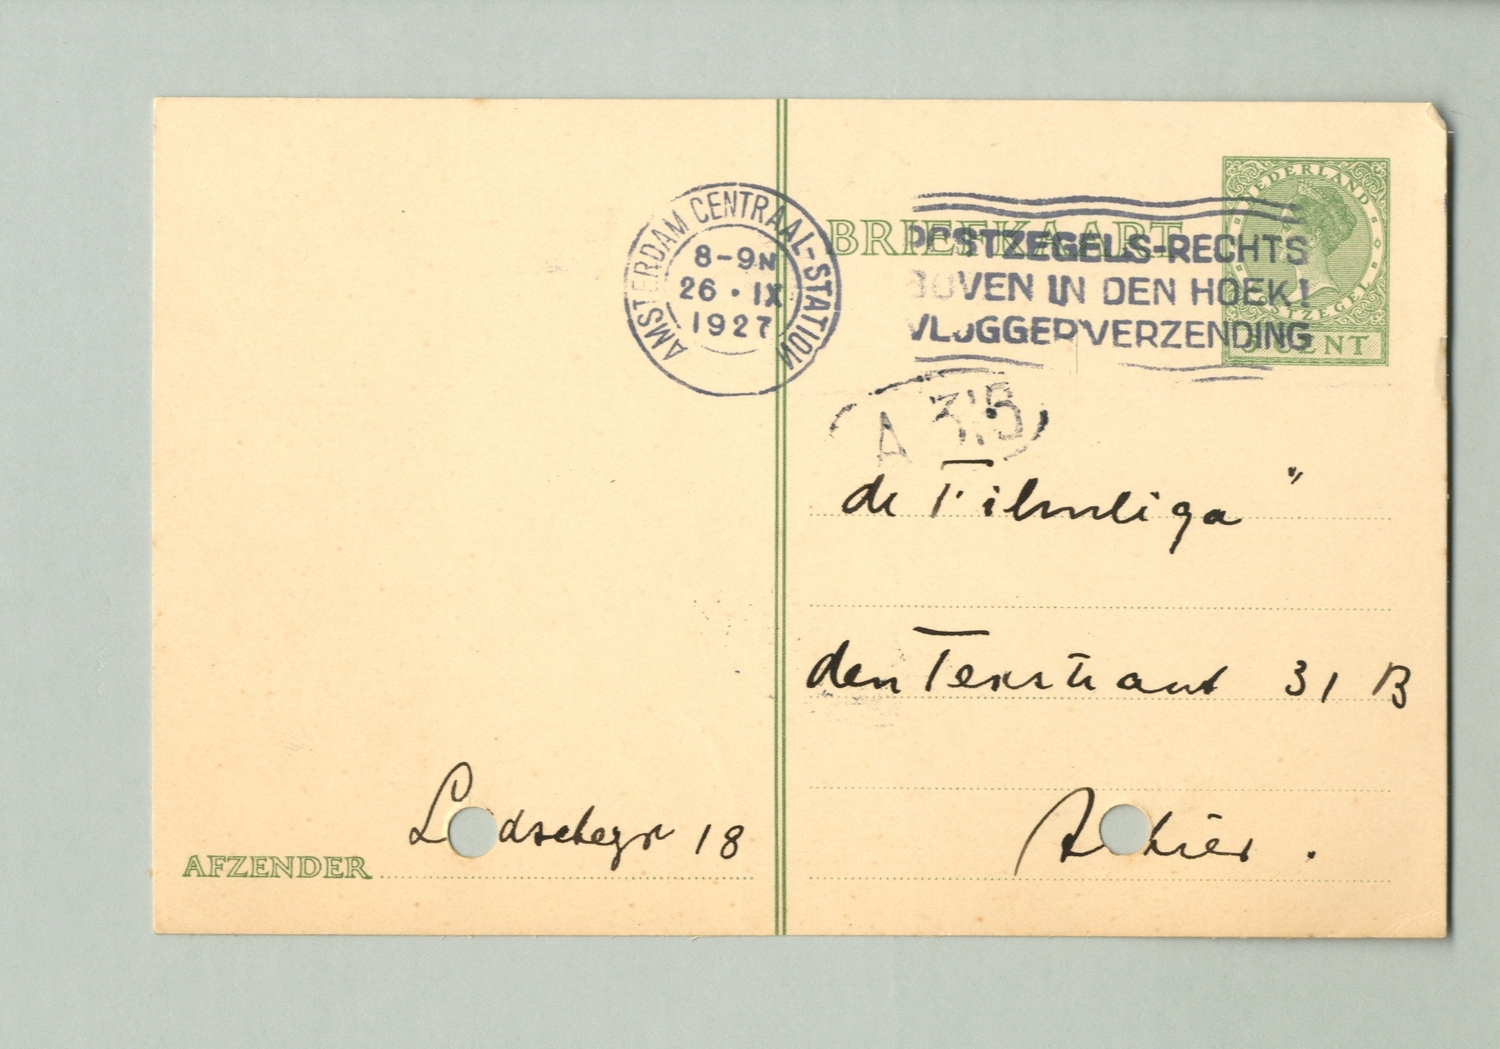 AMSTERDAM CENTRAAL-STATION
8-9N
26 · IX
1927
BRIEFKAART
POSTZEGELS-RECHTS
BOVEN IN DEN HOEK!
VLUGGER VERZENDING
NEDERLAND
POSTZEGEL
CENT
A
de Filmliga "
den Texstraat 31 B
Alhier.
AFZENDER
18